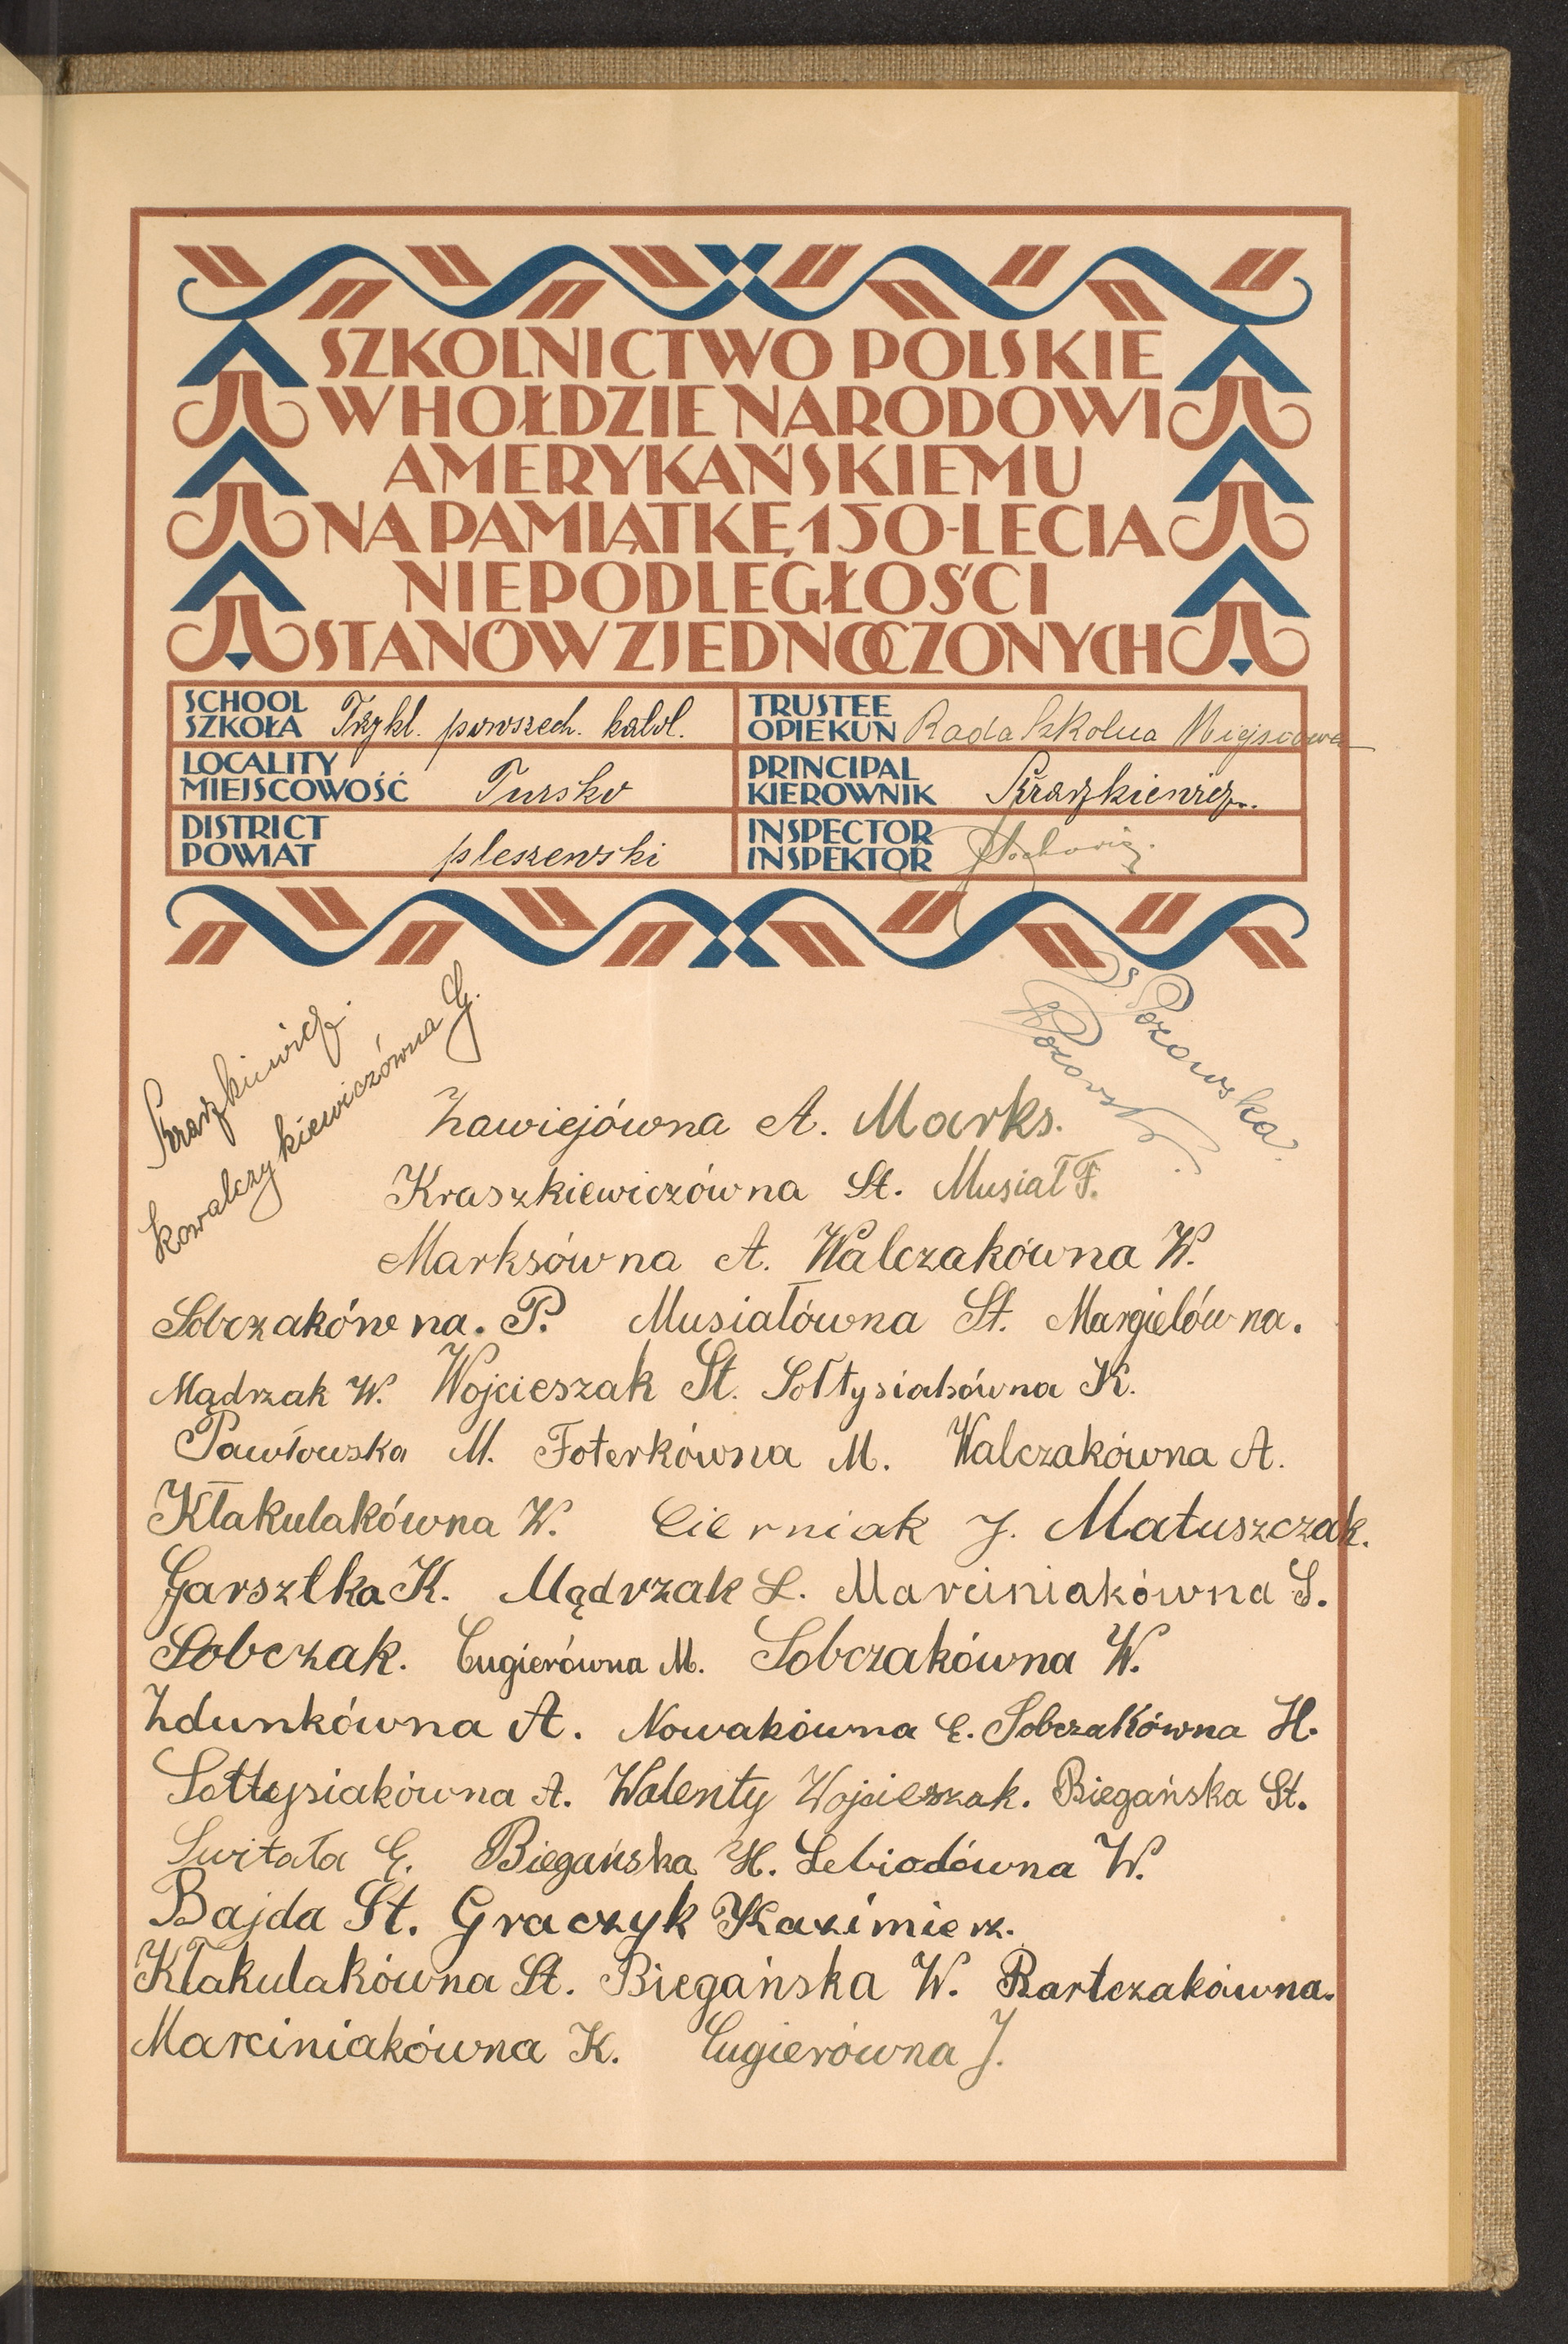 SZKOLNICTWO POLSKIE
W HOŁDZIE NARODOWI
AMERYKAŃSKIEMU
NA PAMIĄTKĘ 150-LECIA
NIEPODLEGŁOŚCI
STANÓW ZJEDNOCZONYCH
SCHOOL
SZKOŁA Trzykl. powszech. katol.
TRUSTEE
OPIEKUN Rada Szkolna Miejscowa
LOCALITY
MIEJSCOWOŚĆ Tursko
PRINCIPAL
KIEROWNIK Kraszkiewicz
DISTRICT
POWIAT pleszewski
INSPECTOR
INSPEKTOR
Kraszkiewicz
Kowalczykiewiczówna G.
Zawiejówna A. Marks.
Kraszkiewiczówna St. Musiał F.
Marksówna A. Walczakówna W.
Sobczakówna. P. Musiałówna St. Margielówna.
Mądrzak W. Wojcieszak St. Sołtysiakówna K.
Pawłowska M. Foterkówna M. Walczakówna A.
Kłakulakówna W. Cierniak J. Matuszczak.
Garsztka K. Mądrzak L. Marciniakówna S.
Sobczak. Cugierówna M. Sobczakówna W.
Zdunkówna A. Nowakówna E. Sobczakówna H.
Sołtysiakówna A. Walenty Wojcieszak. Biegańska St.
Switała E. Biegańska H. Lebiodówna W.
Bajda St. Graczyk Kazimierz.
Kłakulakówna St. Biegańska W. Bartczakówna.
Marciniakówna K. Cugierówna J.